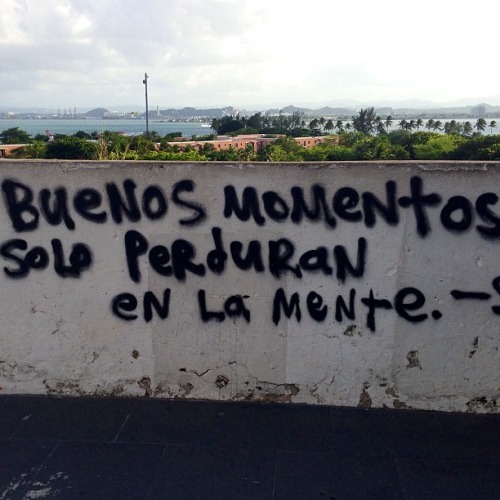 BUENOS MOMENTOS
SOLO PERDURAN
EN LA MENTE. -S